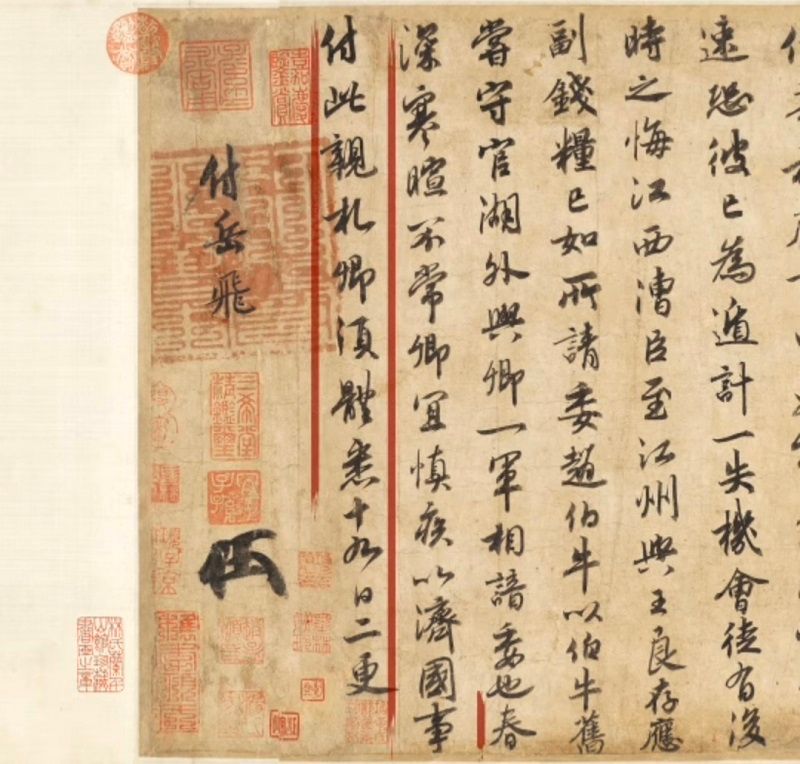 速恐彼已為遁計一失機會徒有後
時之悔江西漕臣至江州與王良存應
副錢糧已如所請委趙伯牛以伯牛舊
嘗守官湖外與卿一軍相諳委也春
深寒暄不常卿宜慎疾以濟國事
付此親札卿須體悉十九日二更
付岳飛
三希堂精鑑璽
宜子孫